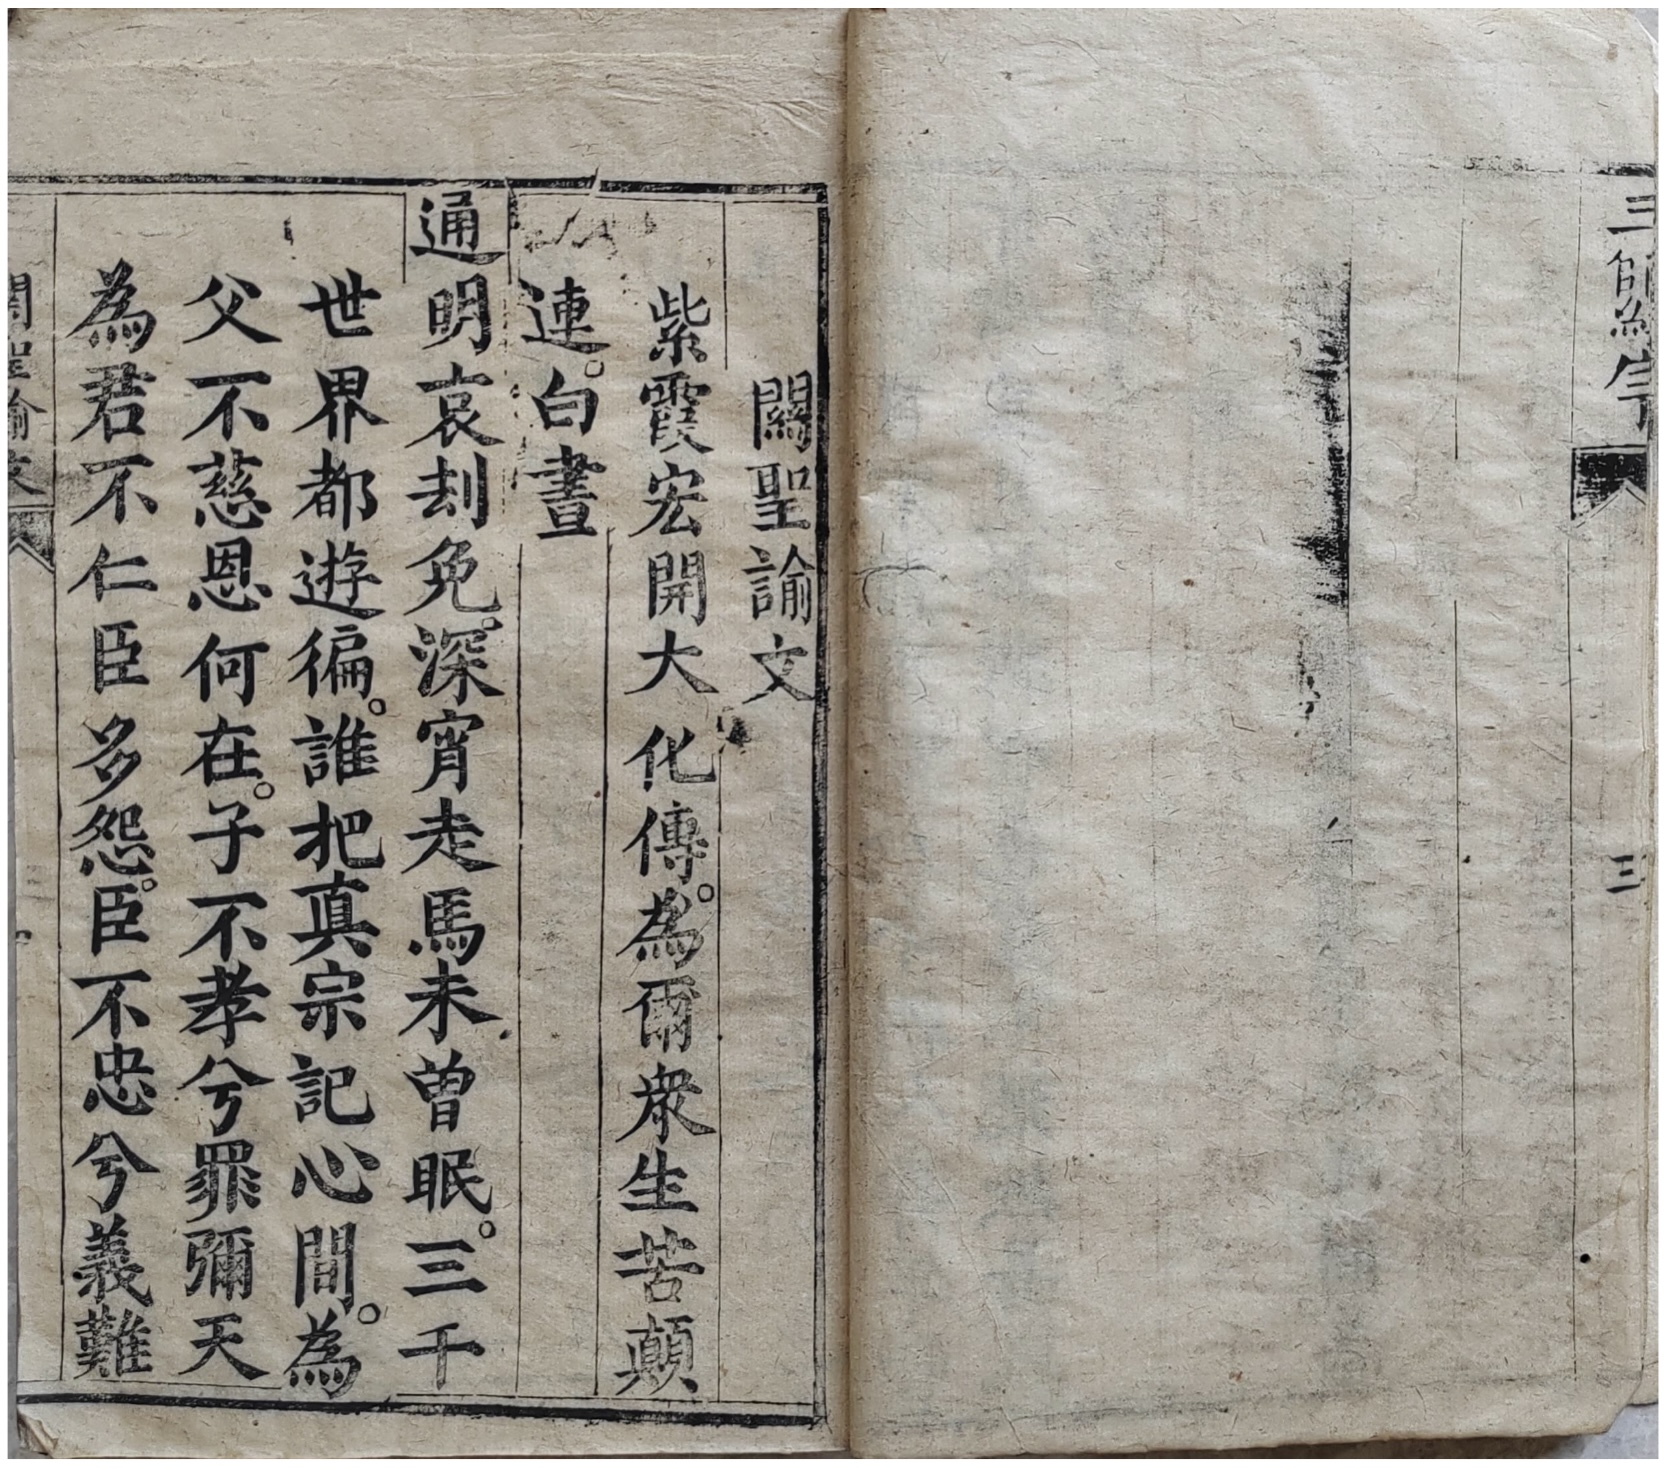 三師
三
關聖諭文
紫霞宏開大化傳。為爾衆生苦顛
連。白晝
通明哀刦免。深宵走馬未曾眠。三千
世界都遊徧。誰把真宗記心間。為
父不慈恩何在。子不孝兮罪彌天
為君不仁臣多怨。臣不忠兮義難
關聖諭文